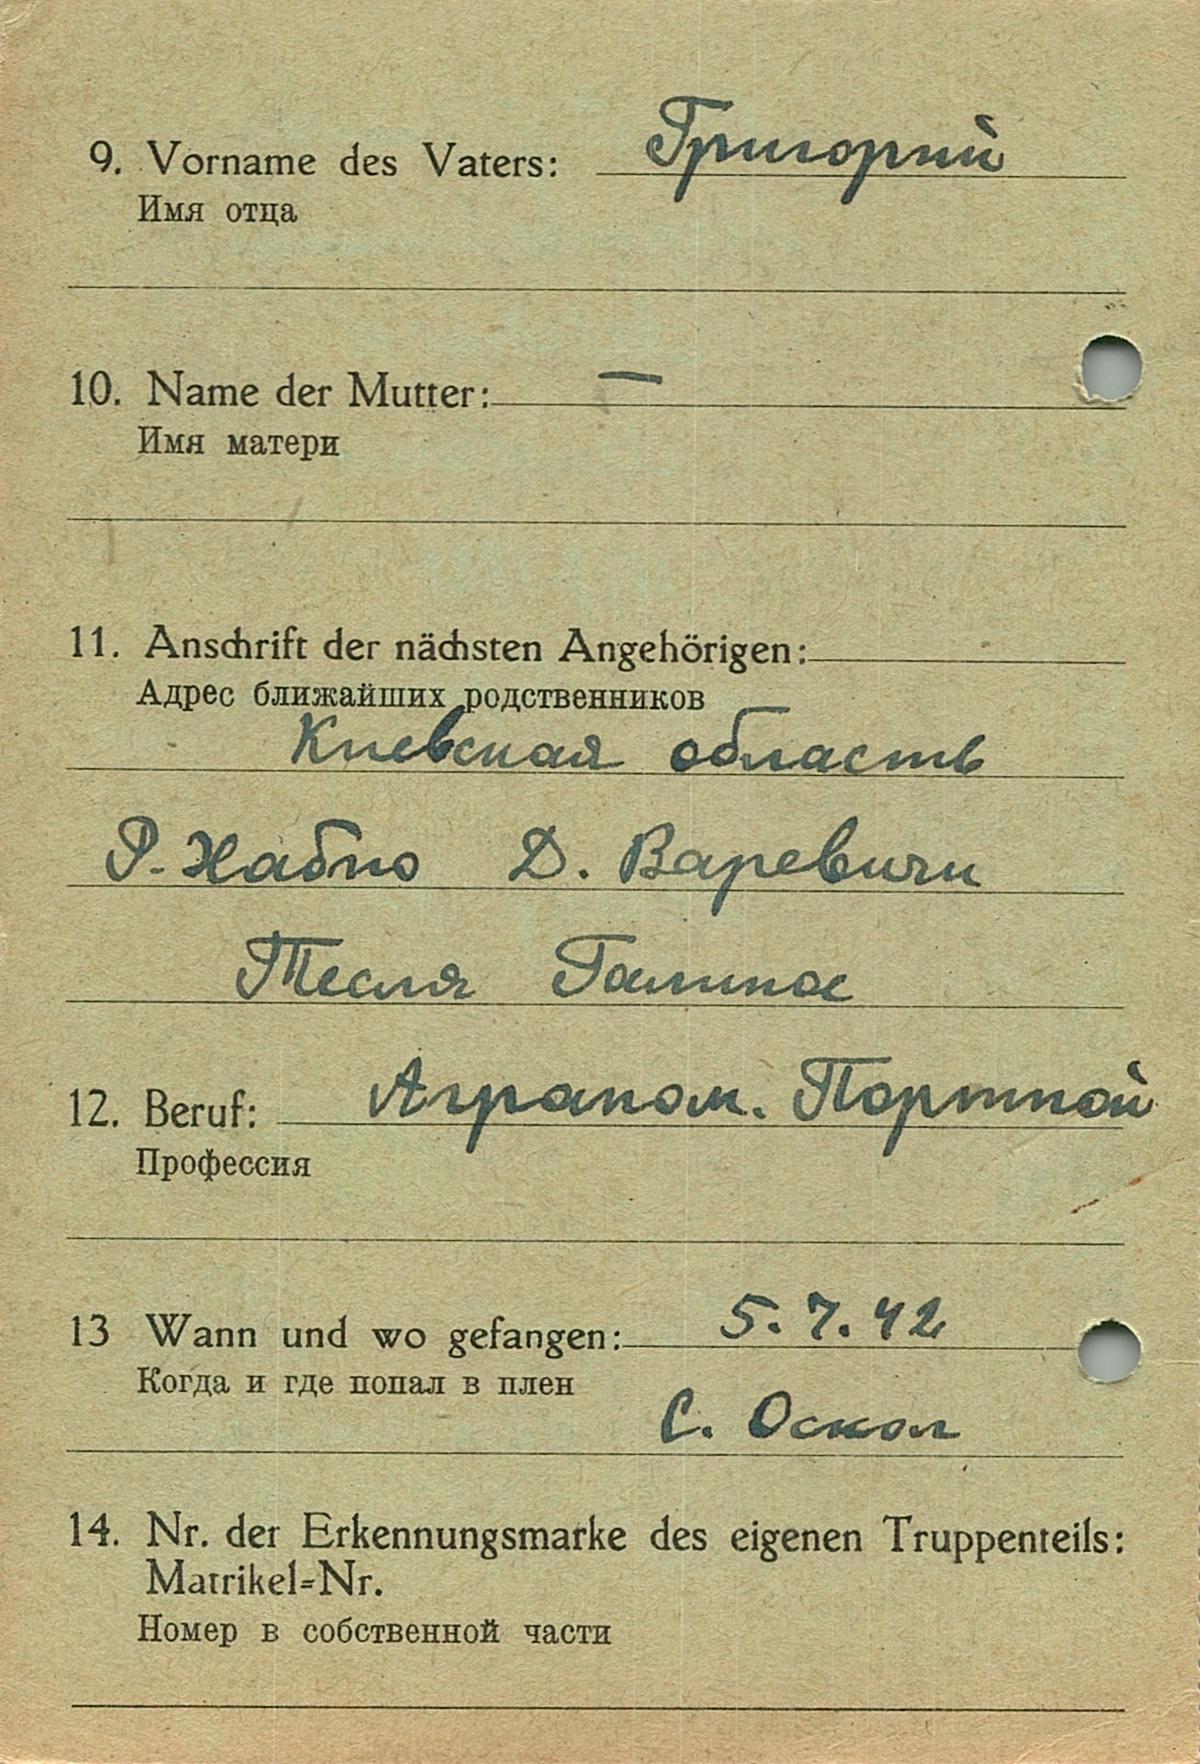 9. Vorname des Vaters: Григорий
Имя отца
10. Name der Mutter: —
Имя матери
11. Anschrift der nächsten Angehörigen:
Адрес ближайших родственников
Киевская область
Р. Хабно Д. Варевичи
Тесля Галина
12. Beruf: Аграном. Портной
Профессия
13 Wann und wo gefangen: 5.7.42
Когда и где попал в плен
С. Оскол
14. Nr. der Erkennungsmarke des eigenen Truppenteils:
Matrikel=Nr.
Номер в собственной части